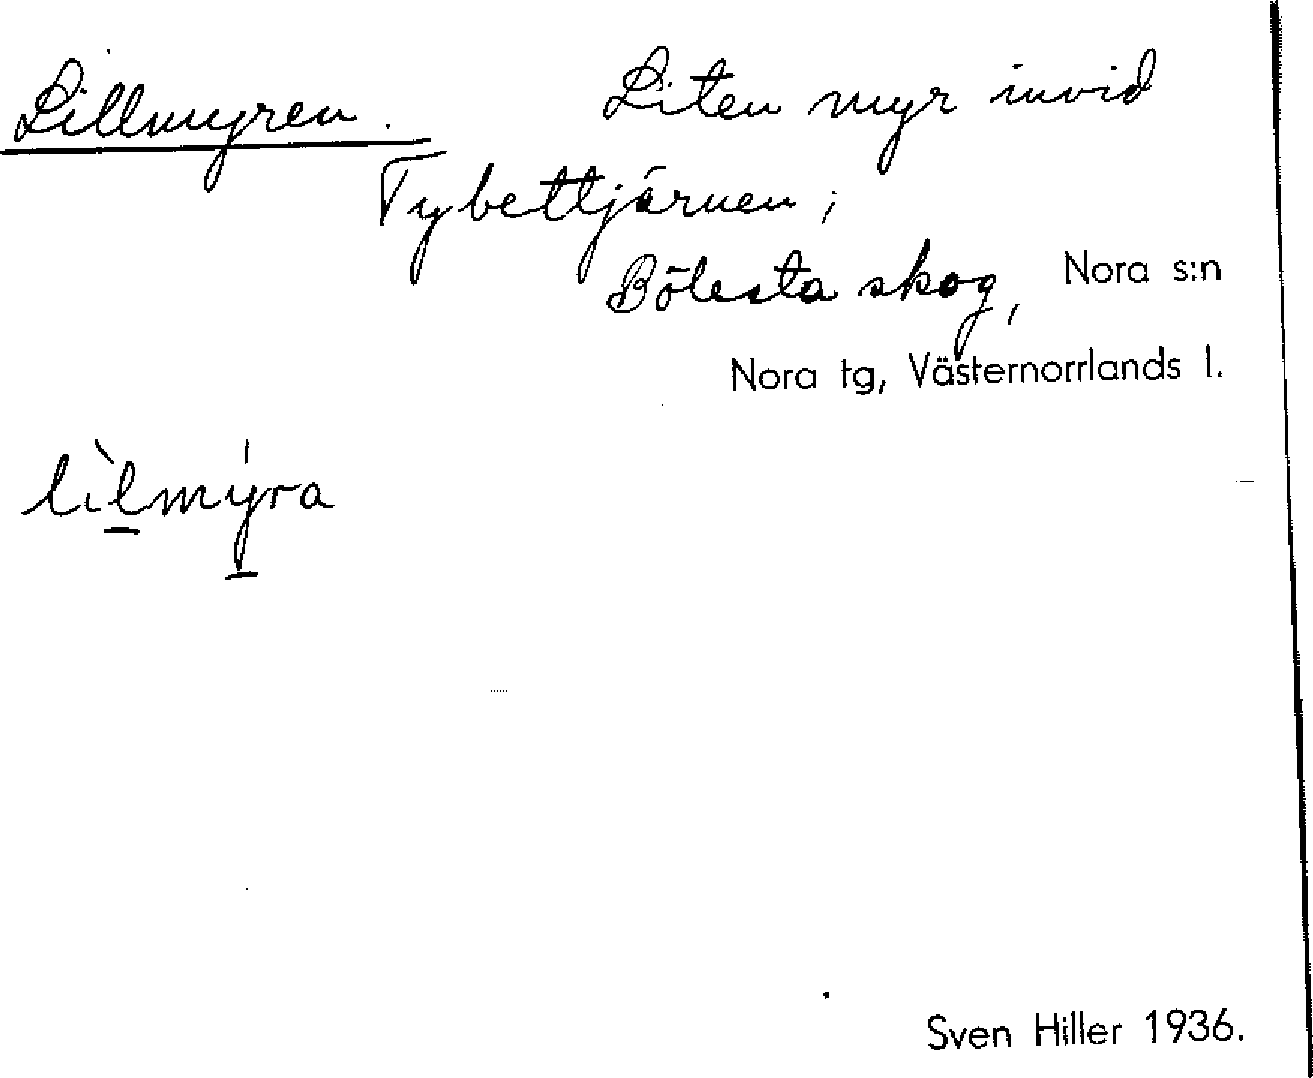 Lillmyren. Liten myr invid
Tybettjärnen;
Bölesta skog, Nora s:n
Nora tg, Västernorrlands l.
lìlmýra
Sven Hiller 1936.